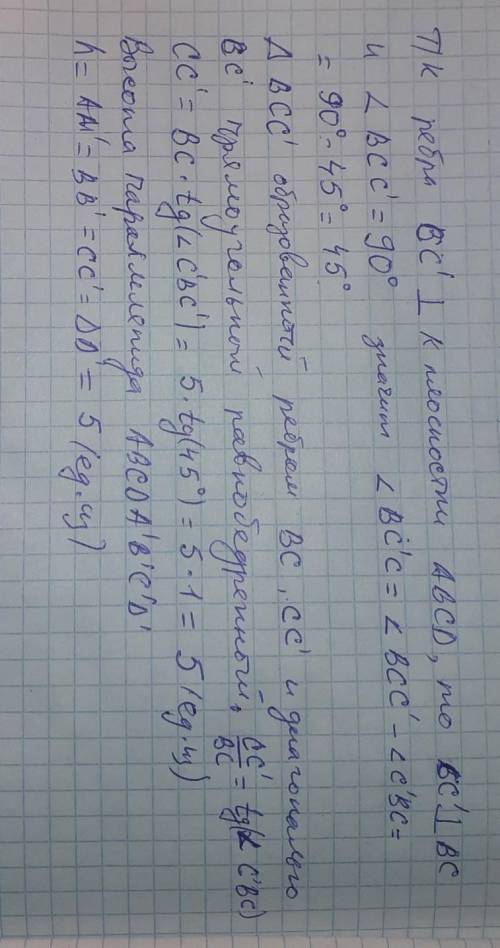 Т/к ребра BC' ⊥ к плоскости ABCD, то BC' ⊥ BC
и ∠ BCC' = 90° значит ∠ BC'C = ∠ BCC' - ∠C'BC =
= 90° - 45° = 45°
Δ BCC' образованный ребрам BC, CC' и диагональю
BC' прямоугольный равнобедренный, CC'/BC = tg(∠ C'BC)
CC' = BC · tg(∠ C'BC') = 5 · tg(45°) = 5 · 1 = 5 (ед. из)
Высота параллелепида ABCDA'B'C'D'
h = AA' = BB' = CC' = DD' = 5 (ед. из)